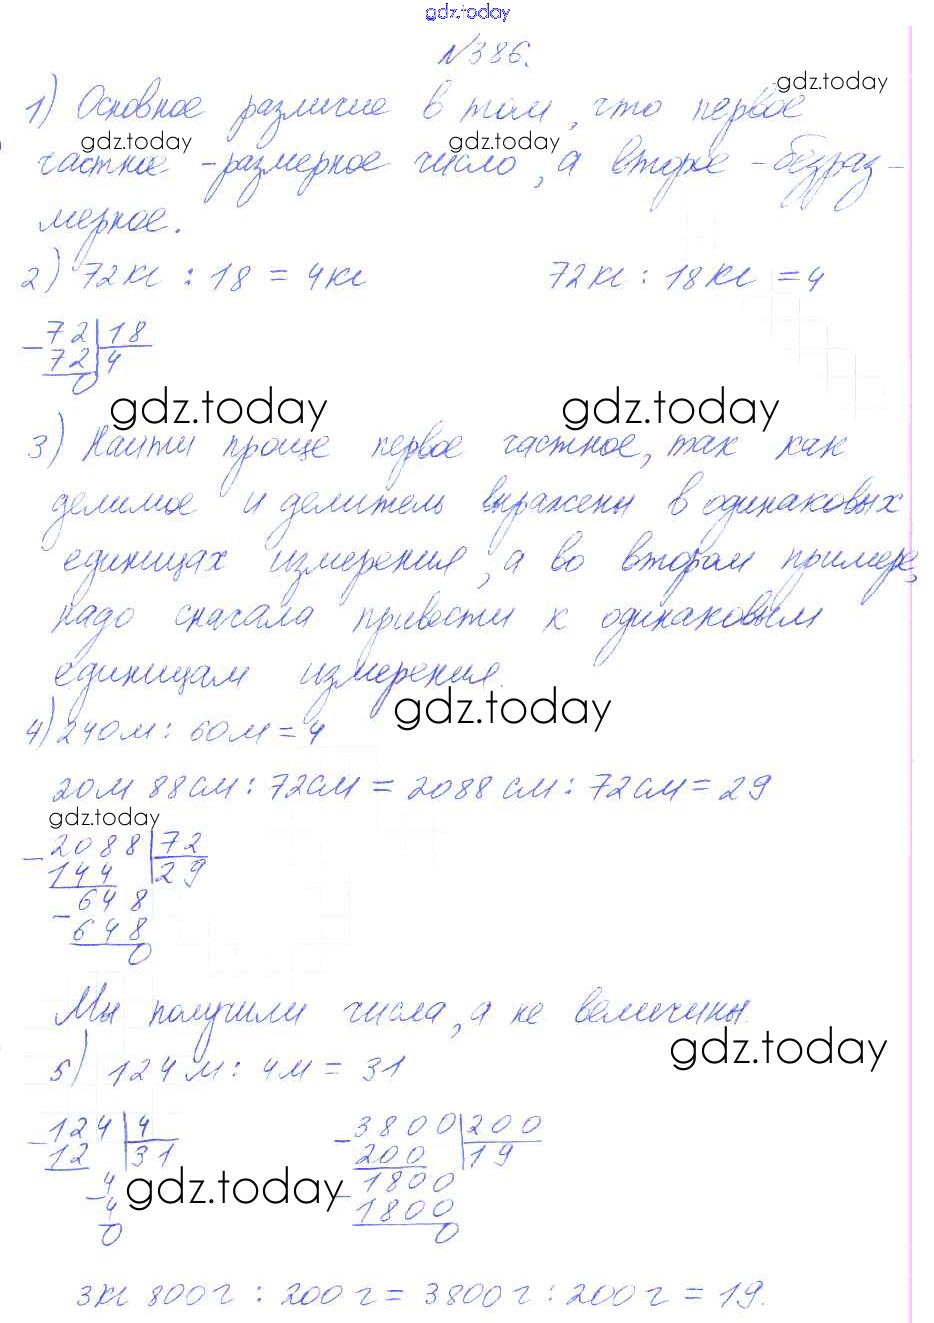 gdz.today
№386.
gdz.today
1) Основное различие в том, что первое
gdz.today gdz.today
частное - размерное число, а второе - безраз-
мерное.
2) 72кг : 18 = 4кг 72кг : 18кг = 4
- 72 | 18
72 | 4
0
gdz.today gdz.today
3) Найти проще первое частное, так как
делимое и делитель выражены в одинаковых
единицах измерения, а во втором примере,
надо сначала привести к одинаковым
единицам измерения.
gdz.today
4) 240м : 60м = 4
20м 88см : 72см = 2088см : 72см = 29
gdz.today
- 2088 | 72
144 | 29
- 648
648
0
Мы получили числа, а не величины.
gdz.today
5) 124м : 4м = 31
- 124 | 4 - 3800 | 200
12 | 31 200 | 19
- 4 - 1800
4 1800
0 0
gdz.today
3кг 800г : 200г = 3800г : 200г = 19.